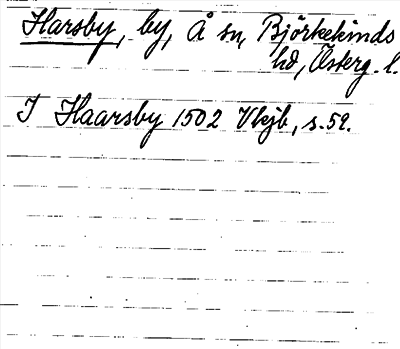 Harsby, by, Å sn, Björkekinds
hd, Österg. l.
I Haarsby 1502 Vkjb, s. 59.